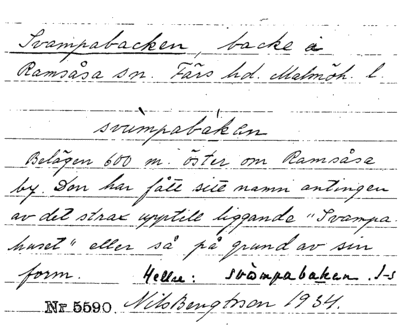 Svampabacken, backe i
Ramsåsa sn. Färs hd. Malmöh. l.
svàmpabákan
Belägen 600 m. öster om Ramsåsa
by. Den har fått sitt namn antingen
av det strax upptill liggande "Svampa-
huset" eller så på grund av sin
form. Heller: svàmpabaken. I-s
Nr. 5590 Nils Bengtsson 1934.